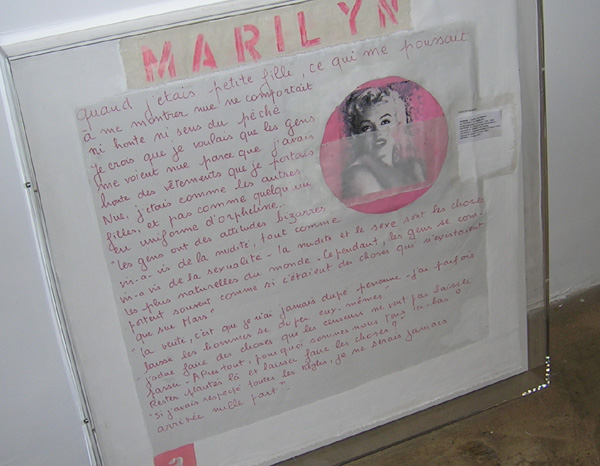 MARILYN
quand j'étais petite fille, ce qui me poussait
à me montrer nue ne comportait
ni honte ni sens du péché
Je crois que je voulais que les gens
me voient nue parce que j'avais
honte des vêtements que je portais
Nue, j'étais comme les autres
filles, et pas comme quelqu'un
en uniforme d'orpheline..
"les gens ont des attitudes bizarres
vis-à-vis de la nudité, tout comme
vis-à-vis de la sexualité - la nudité et le sexe sont les choses
les plus naturelles du monde - Cependant, les gens se com-
portent souvent comme si c'étaient des choses qui n'existaient
que sur Mars"
"la vérité, c'est que je n'ai jamais dupé personne - j'ai parfois
laissé les hommes se duper eux-mêmes"
j'adore faire des choses que les censeurs ne vont pas laisser
passer - Après tout, pourquoi sommes nous tous ici-bas ?
Rester plantés là et laisser faire les choses ?
"Si j'avais respecté toutes les règles, je ne serais jamais
arrivée nulle part"